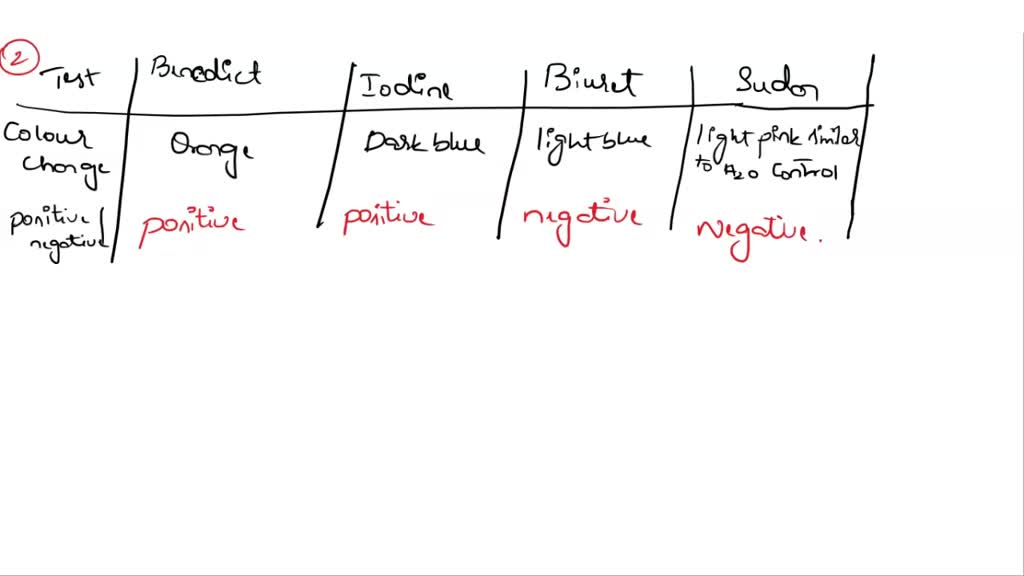 2
Test Benedict Iodine Biuret Sudan
Colour change Orange Dark blue light blue light pink similar to H2O Control
positive/ negative positive positive negative Negative.